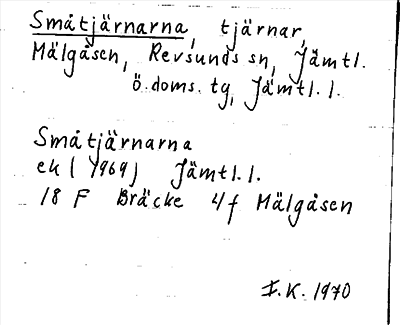 Småtjärnarna, tjärnar,
Mälgåsen, Revsunds sn, Jämtl.
ö. doms. tg, Jämtl. l.
Småtjärnarna
ek (1969) Jämtl. l.
18 F Bräcke 4f Mälgåsen
I.K. 1970